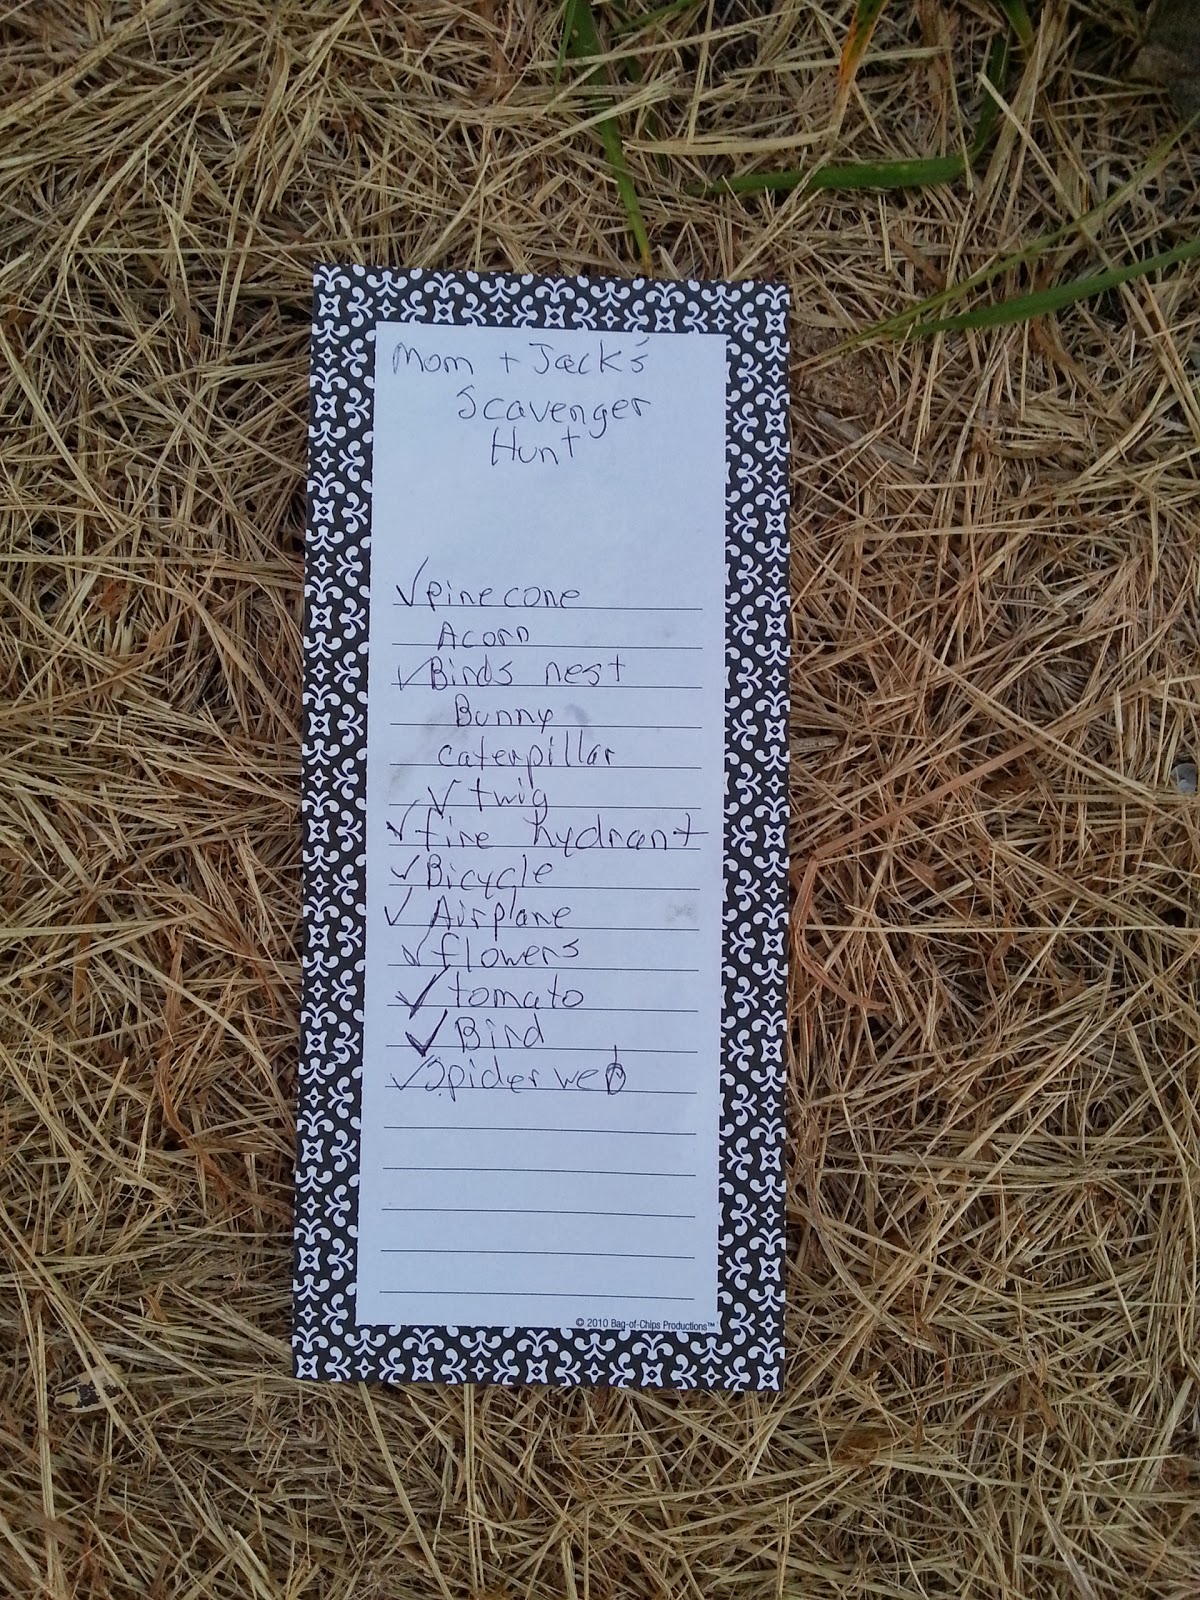 Mom + Jack's
Scavenger
Hunt
✓ pinecone
Acorn
✓ Birds nest
Bunny
caterpillar
✓ twig
✓ fire hydrant
✓ Bicycle
✓ Airplane
✓ flowers
✓ tomato
✓ Bird
✓ Spider web
© 2010 Bag-of-Chips Productions™